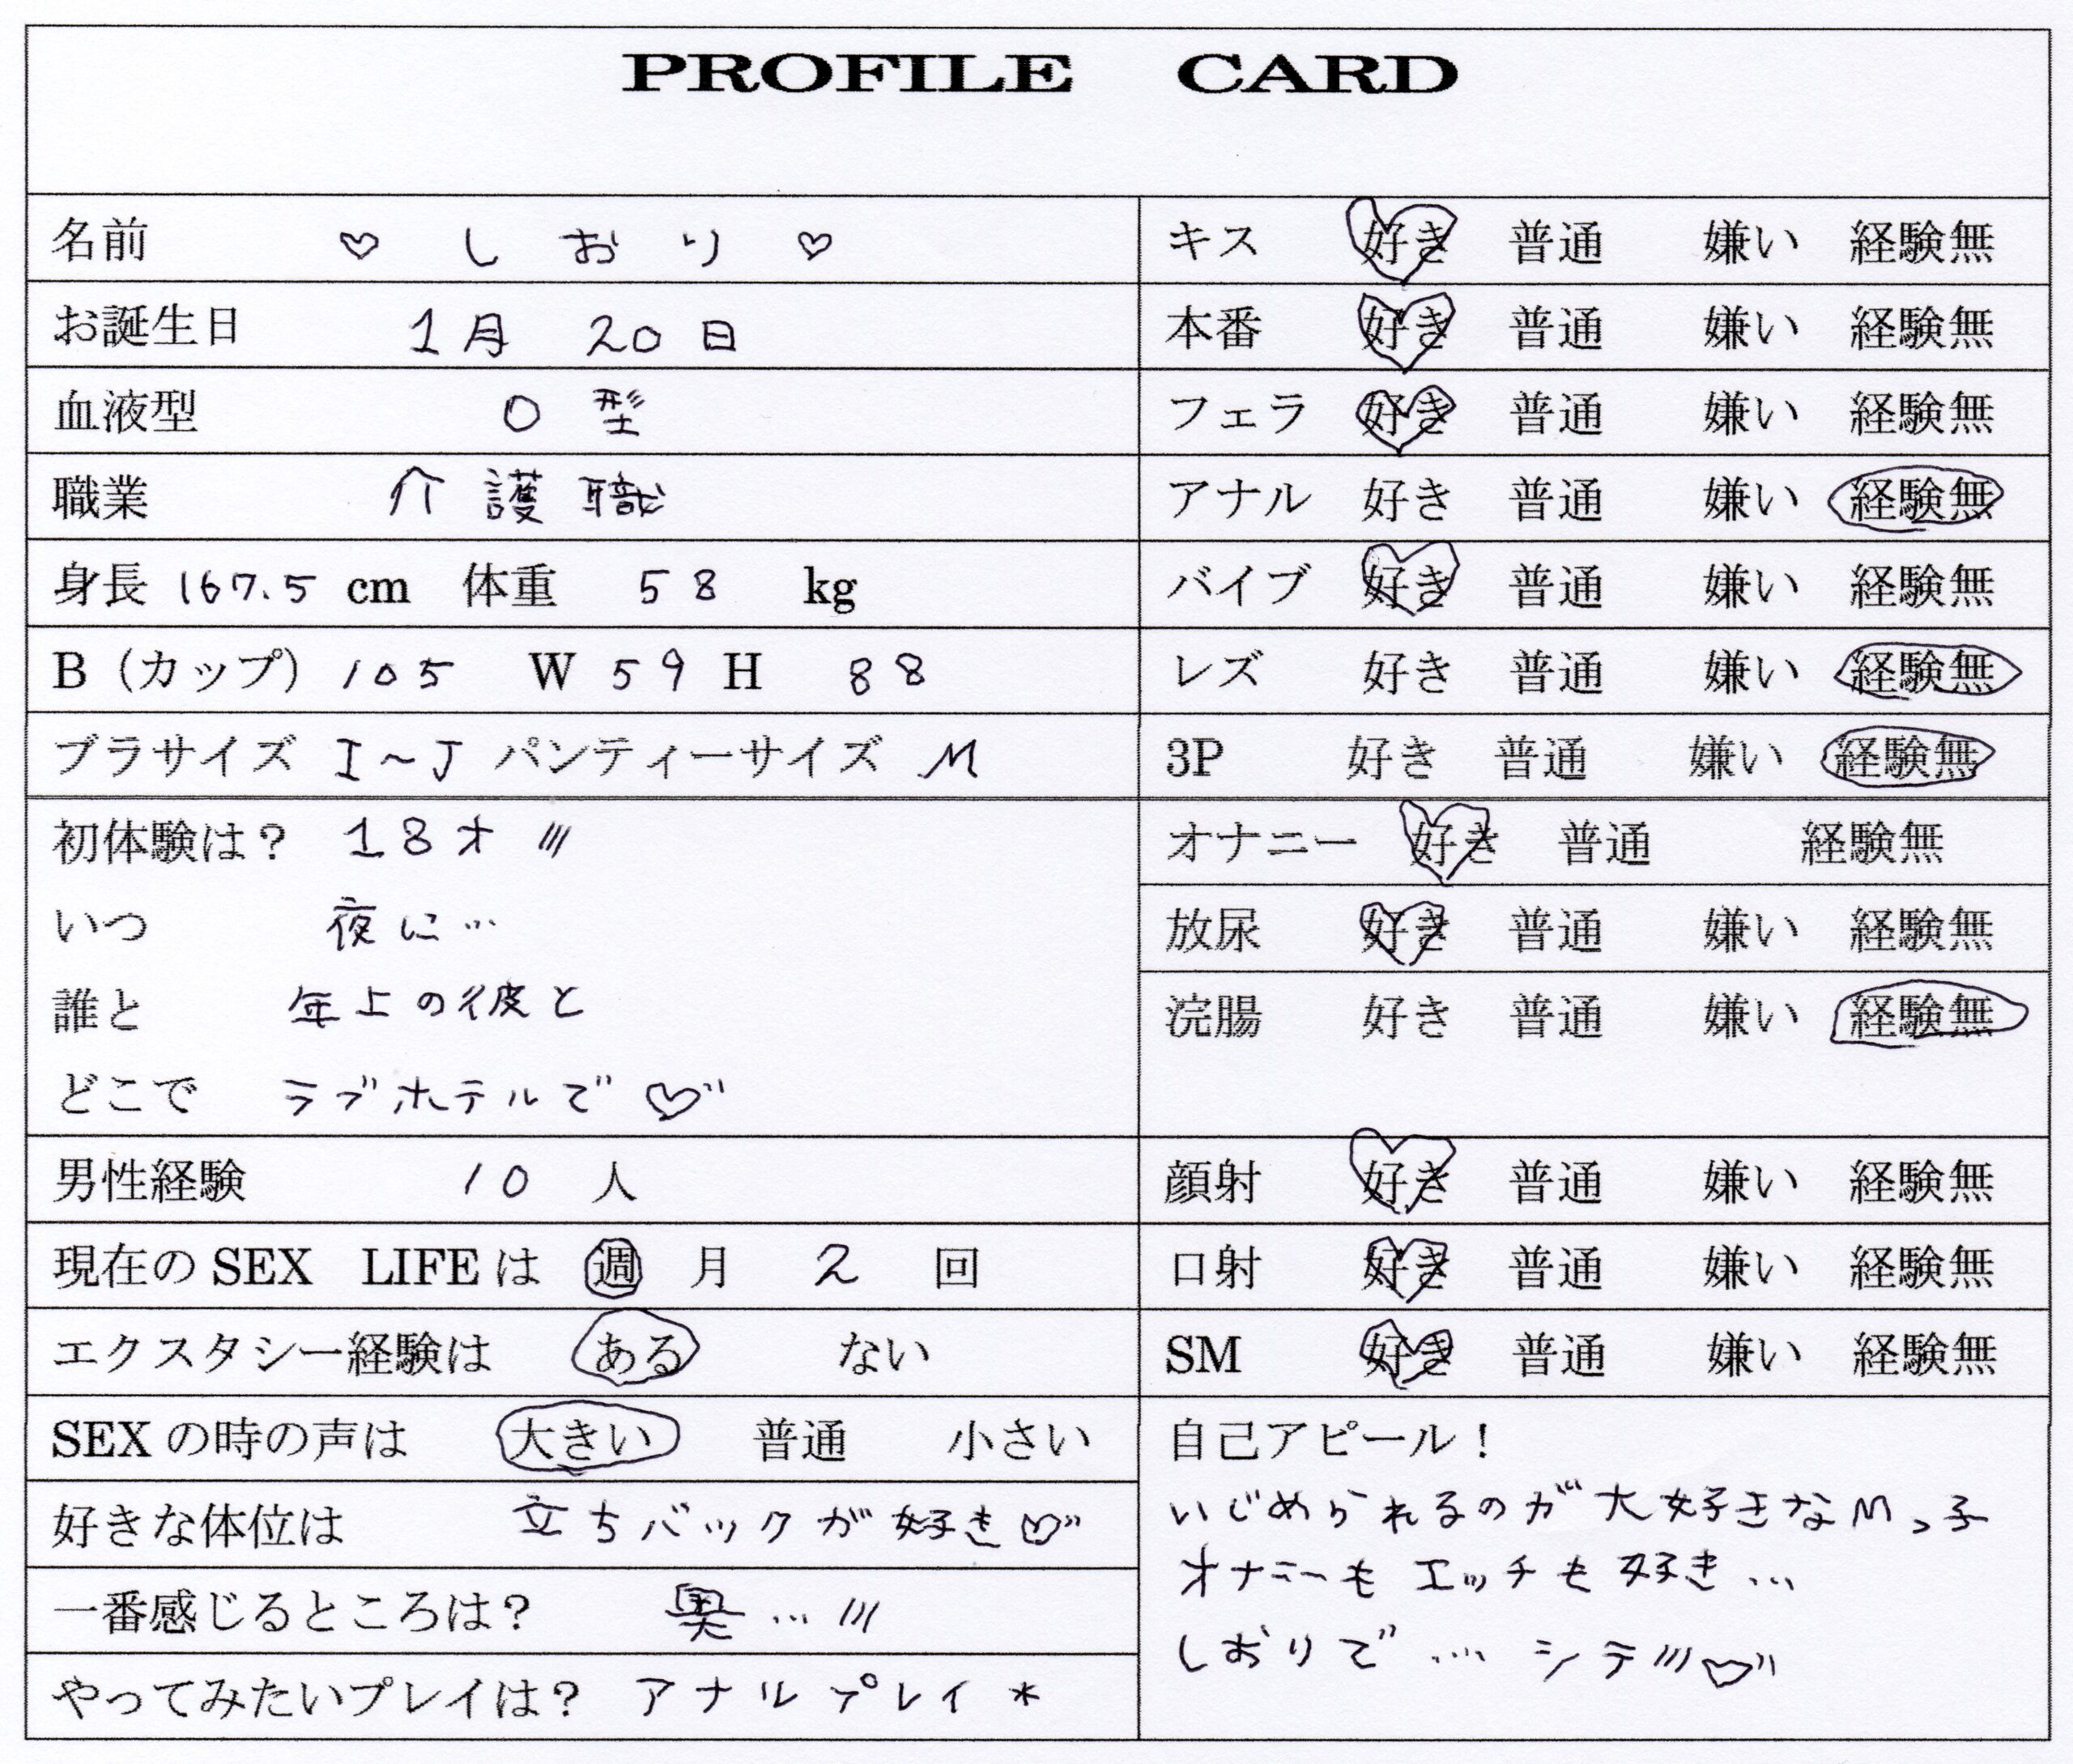 PROFILE CARD
名前 ♡ しおり ♡
お誕生日 1月 20日
血液型 O 型
職業 介護職
身長 167.5 cm 体重 58 kg
B（カップ）105 W 59 H 88
ブラサイズ I～J パンティーサイズ M
初体験は？ 18才 ///
いつ 夜に…
誰と 年上の彼と
どこで ラブホテルで ♡
男性経験 10 人
現在の SEX LIFE は 週 月 2 回
エクスタシー経験は ある ない
SEX の時の声は 大きい 普通 小さい
好きな体位は 立ちバックが好き♡
一番感じるところは？ 奥… ///
やってみたいプレイは？ アナルプレイ *
キス 好き 普通 嫌い 経験無
本番 好き 普通 嫌い 経験無
フェラ 好き 普通 嫌い 経験無
アナル 好き 普通 嫌い 経験無
バイブ 好き 普通 嫌い 経験無
レズ 好き 普通 嫌い 経験無
3P 好き 普通 嫌い 経験無
オナニー 好き 普通 経験無
放尿 好き 普通 嫌い 経験無
浣腸 好き 普通 嫌い 経験無
顔射 好き 普通 嫌い 経験無
口射 好き 普通 嫌い 経験無
SM 好き 普通 嫌い 経験無
自己アピール！
いじめられるのが大好きなMっ子
オナニーもエッチも好き…
しおりで… シテ///♡